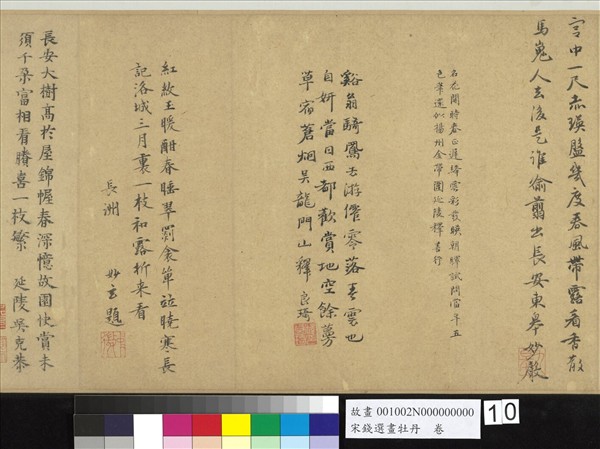 宫中一尺赤瑛盤幾度春風帶露看香散
馬嵬人去後是誰偷翦出長安東皋妙聲
名花開時春正遲絳雲彩散映朝曦試問當年五
色筆還似揚州金帶圍延陵釋善行
谿翁騎鶴去游僊零落春雲也
自妍當日西都歡賞地空餘蔓
草宿蒼烟吳龍門山釋良琦
紅玉暖酣春睡翠衾單曉寒長
記洛城三月裏一枝和露折来看
長洲
妙玄題
長安大樹髙於屋錦幄春深憶故園快賞未
須千朵富相看賸喜一枝繁 延陵吳克恭
故畫 001002N000000000
宋錢選畫牡丹 卷
10